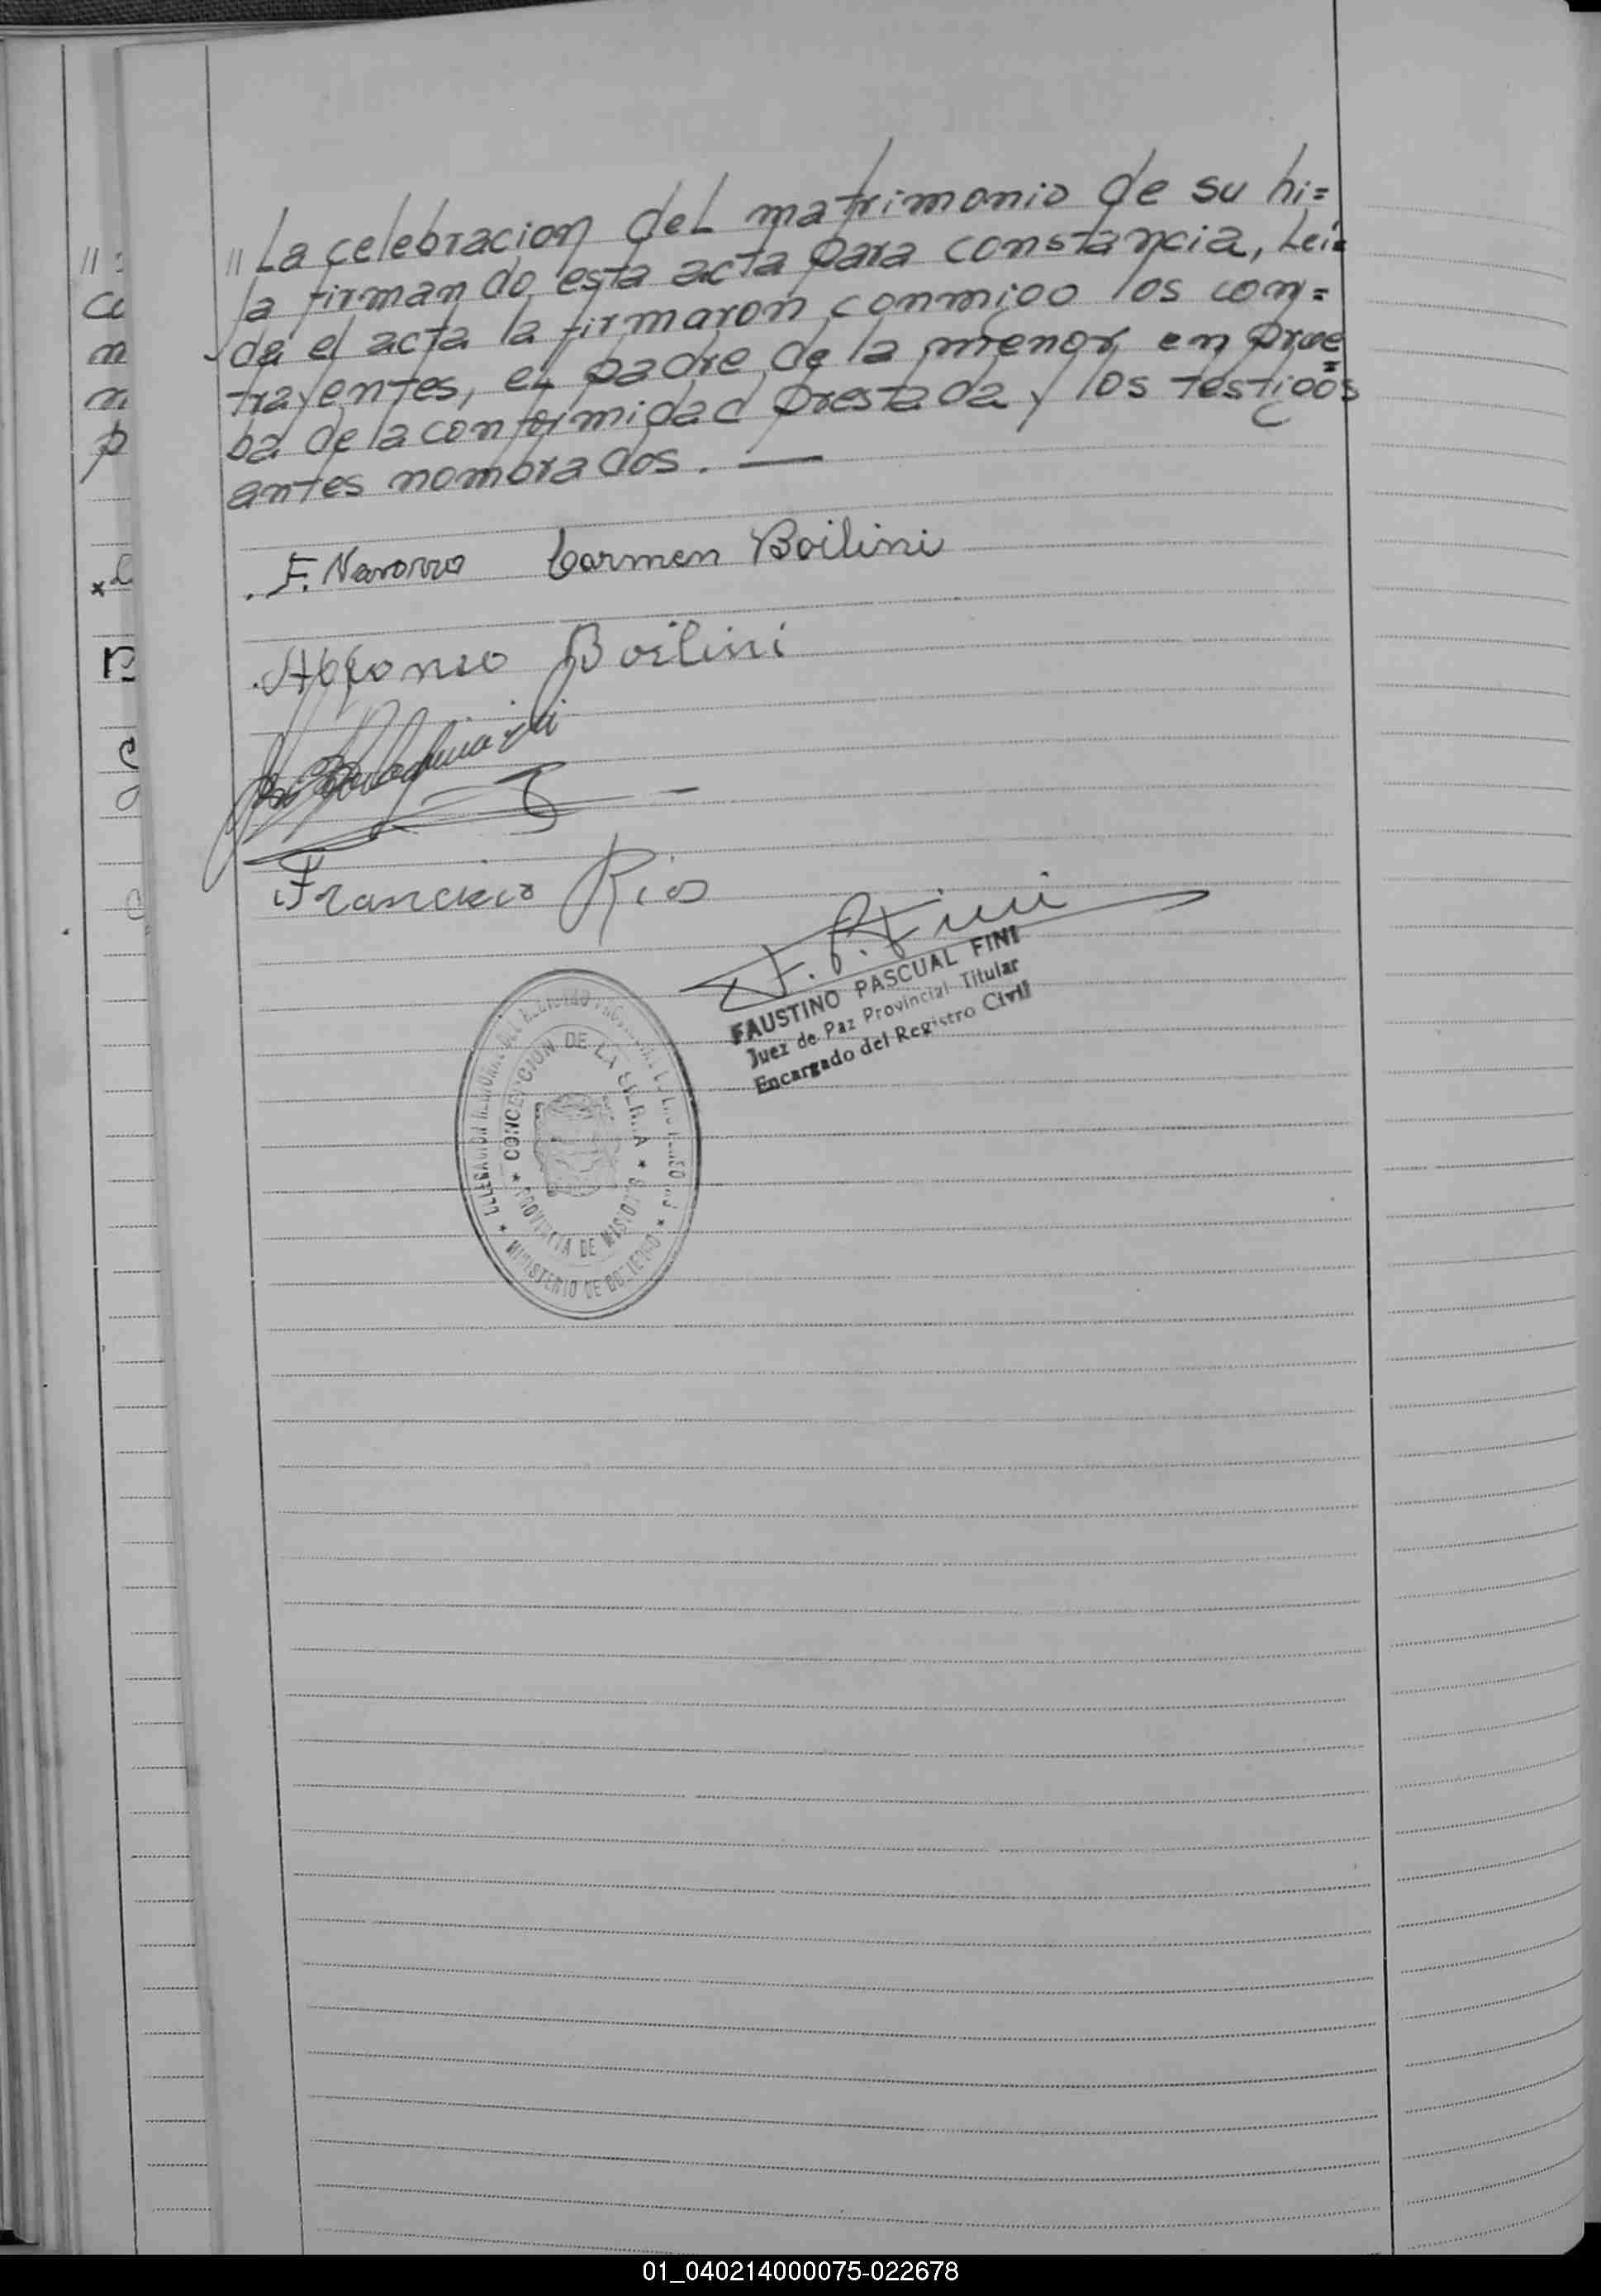 "La celebracion del matrimonio de su hi=
ja firmando esta acta para constancia, Leí=
da el acta la firmaron conmigo los con=
trayentes, el padre de la menor, en prue=
ba de la conformidad prestada y los testigos
antes nombrados. —
F. Navarro Carmen Boilini
Alfonso Boilini
Francisco Rios
F. P. Fini
FAUSTINO PASCUAL FINI
Juez de Paz Provincial Titular
Encargado del Registro Civil
CONCEPCION DE LA SIERRA
PROVINCIA DE MISIONES
MINISTERIO DE GOBIERNO
01_040214000075-022678